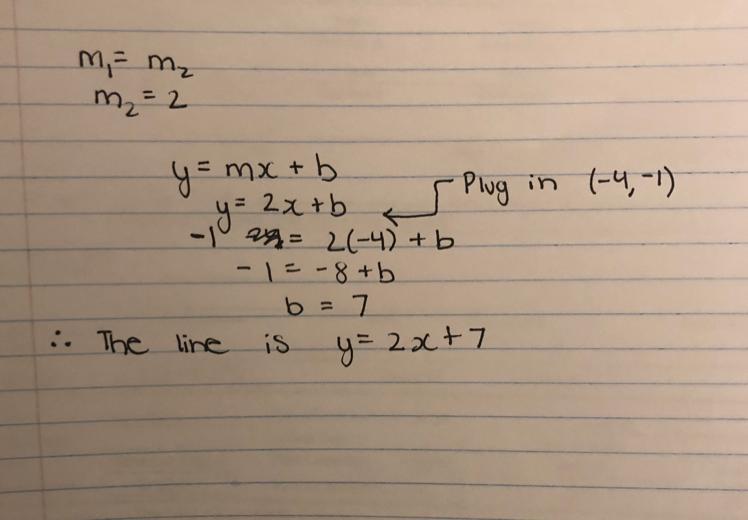 m₁ = m₂
m₂ = 2
y = mx + b
Plug in (-4, -1)
y = 2x + b
-1 = 2(-4) + b
-1 = -8 + b
b = 7
∴ The line is y = 2x + 7